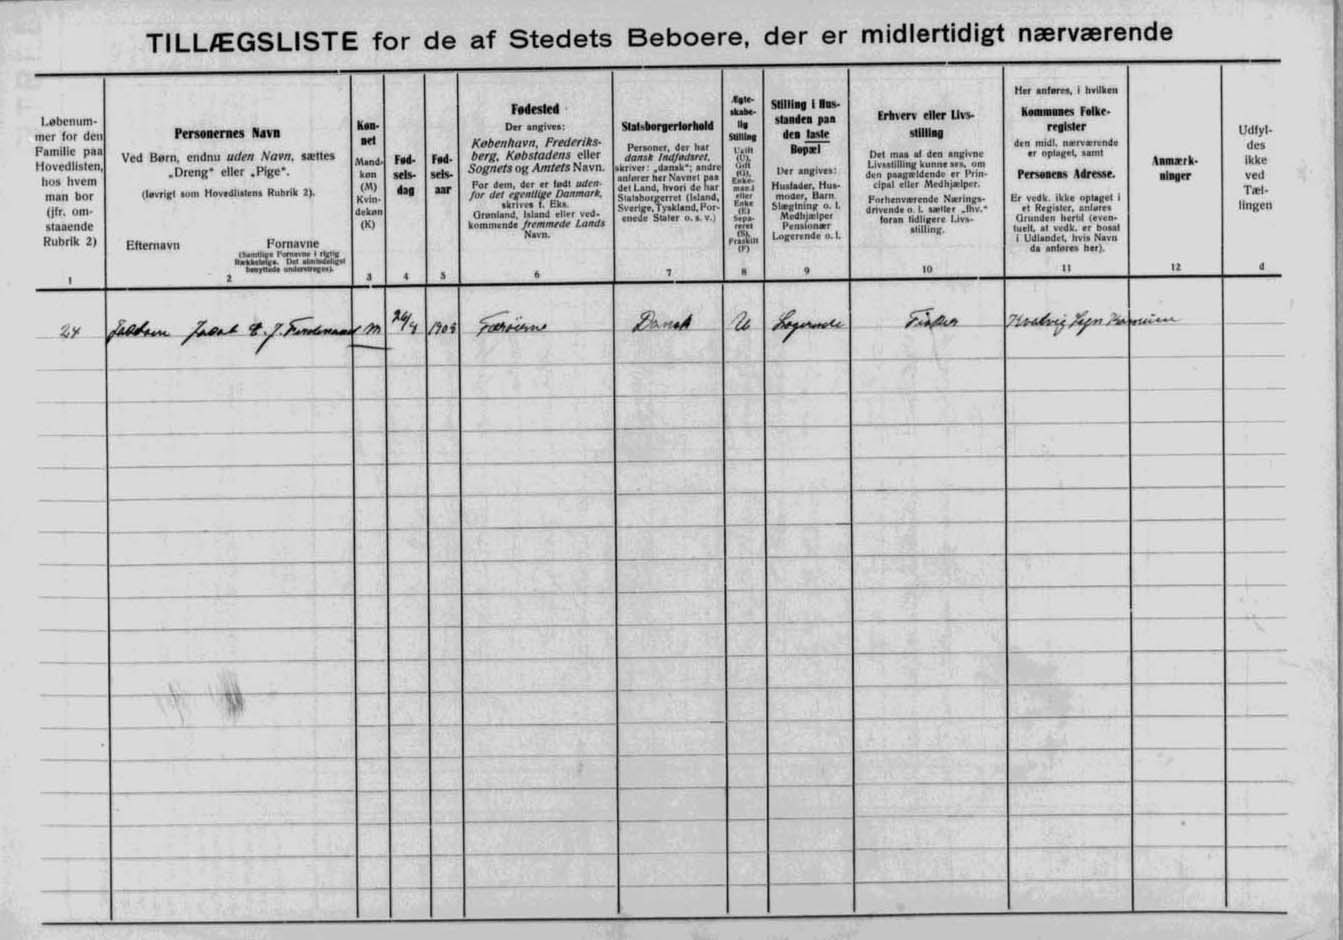 TILLÆGSLISTE for de af Stedets Beboere, der er midlertidigt nærværende
Løbenum-
mer for den
Familie paa
Hovedlisten,
hos hvem
man bor
(jfr. om-
staaende
Rubrik 2)
1
Personernes Navn
Ved Børn, endnu uden Navn, sættes
„Dreng“ eller „Pige“.
(Iøvrigt som Hovedlistens Rubrik 2).
Efternavn
Fornavne
(Samtlige Fornavne i rigtig
Rækkefølge. Det almindeligst
benyttede understreges).
2
Køn-
net
Mand-
køn
(M)
Kvin-
dekøn
(K)
3
Fød-
sels-
dag
4
Fød-
sels-
aar
5
Fødested
Der angives:
København, Frederiks-
berg, Købstadens eller
Sognets og Amtets Navn.
For dem, der er født uden-
for det egentlige Danmark,
skrives f. Eks.
Grønland, Island eller ved-
kommende fremmede Lands
Navn.
6
Statsborgerforhold
Personer, der har
dansk Indfødsret,
skriver: „dansk“; andre
anfører her Navnet paa
det Land, hvori de har
Statsborgerret (Island,
Sverige, Tyskland, For-
enede Stater o. s. v.)
7
Ægte-
skabe-
lig
Stilling
Ugift
(U),
Gift
(G),
Enke-
mand
eller
Enke
(E)
Sepa-
reret
(S),
Fraskilt
(F)
8
Stilling i Hus-
standen paa
den faste
Bopæl
Der angives:
Husfader, Hus-
moder, Barn
Slægtning o. l.
Medhjælper
Pensionær
Logerende o. l.
9
Erhverv eller Livs-
stilling
Det maa af den angivne
Livsstilling kunne ses, om
den paagældende er Prin-
cipal eller Medhjælper.
Forhenværende Nærings-
drivende o. l. sætter „fhv.“
foran tidligere Livs-
stilling.
10
Her anføres, i hvilken
Kommunes Folke-
register
den midl. nærværende
er optaget, samt
Personens Adresse.
Er vedk. ikke optaget i
et Register, anføres
Grunden hertil (even-
tuelt, at vedk. er bosat
i Udlandet, hvis Navn
da anføres her).
11
Anmærk-
ninger
12
Udfyl-
des
ikke
ved
Tæl-
lingen
d
24 Jakob J. Ferdinand M 1903 Færöerne Dansk U Logerende Fisker